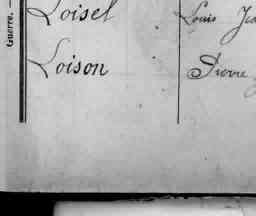 Guerre. —
Loisel Louis
Loison Pierre